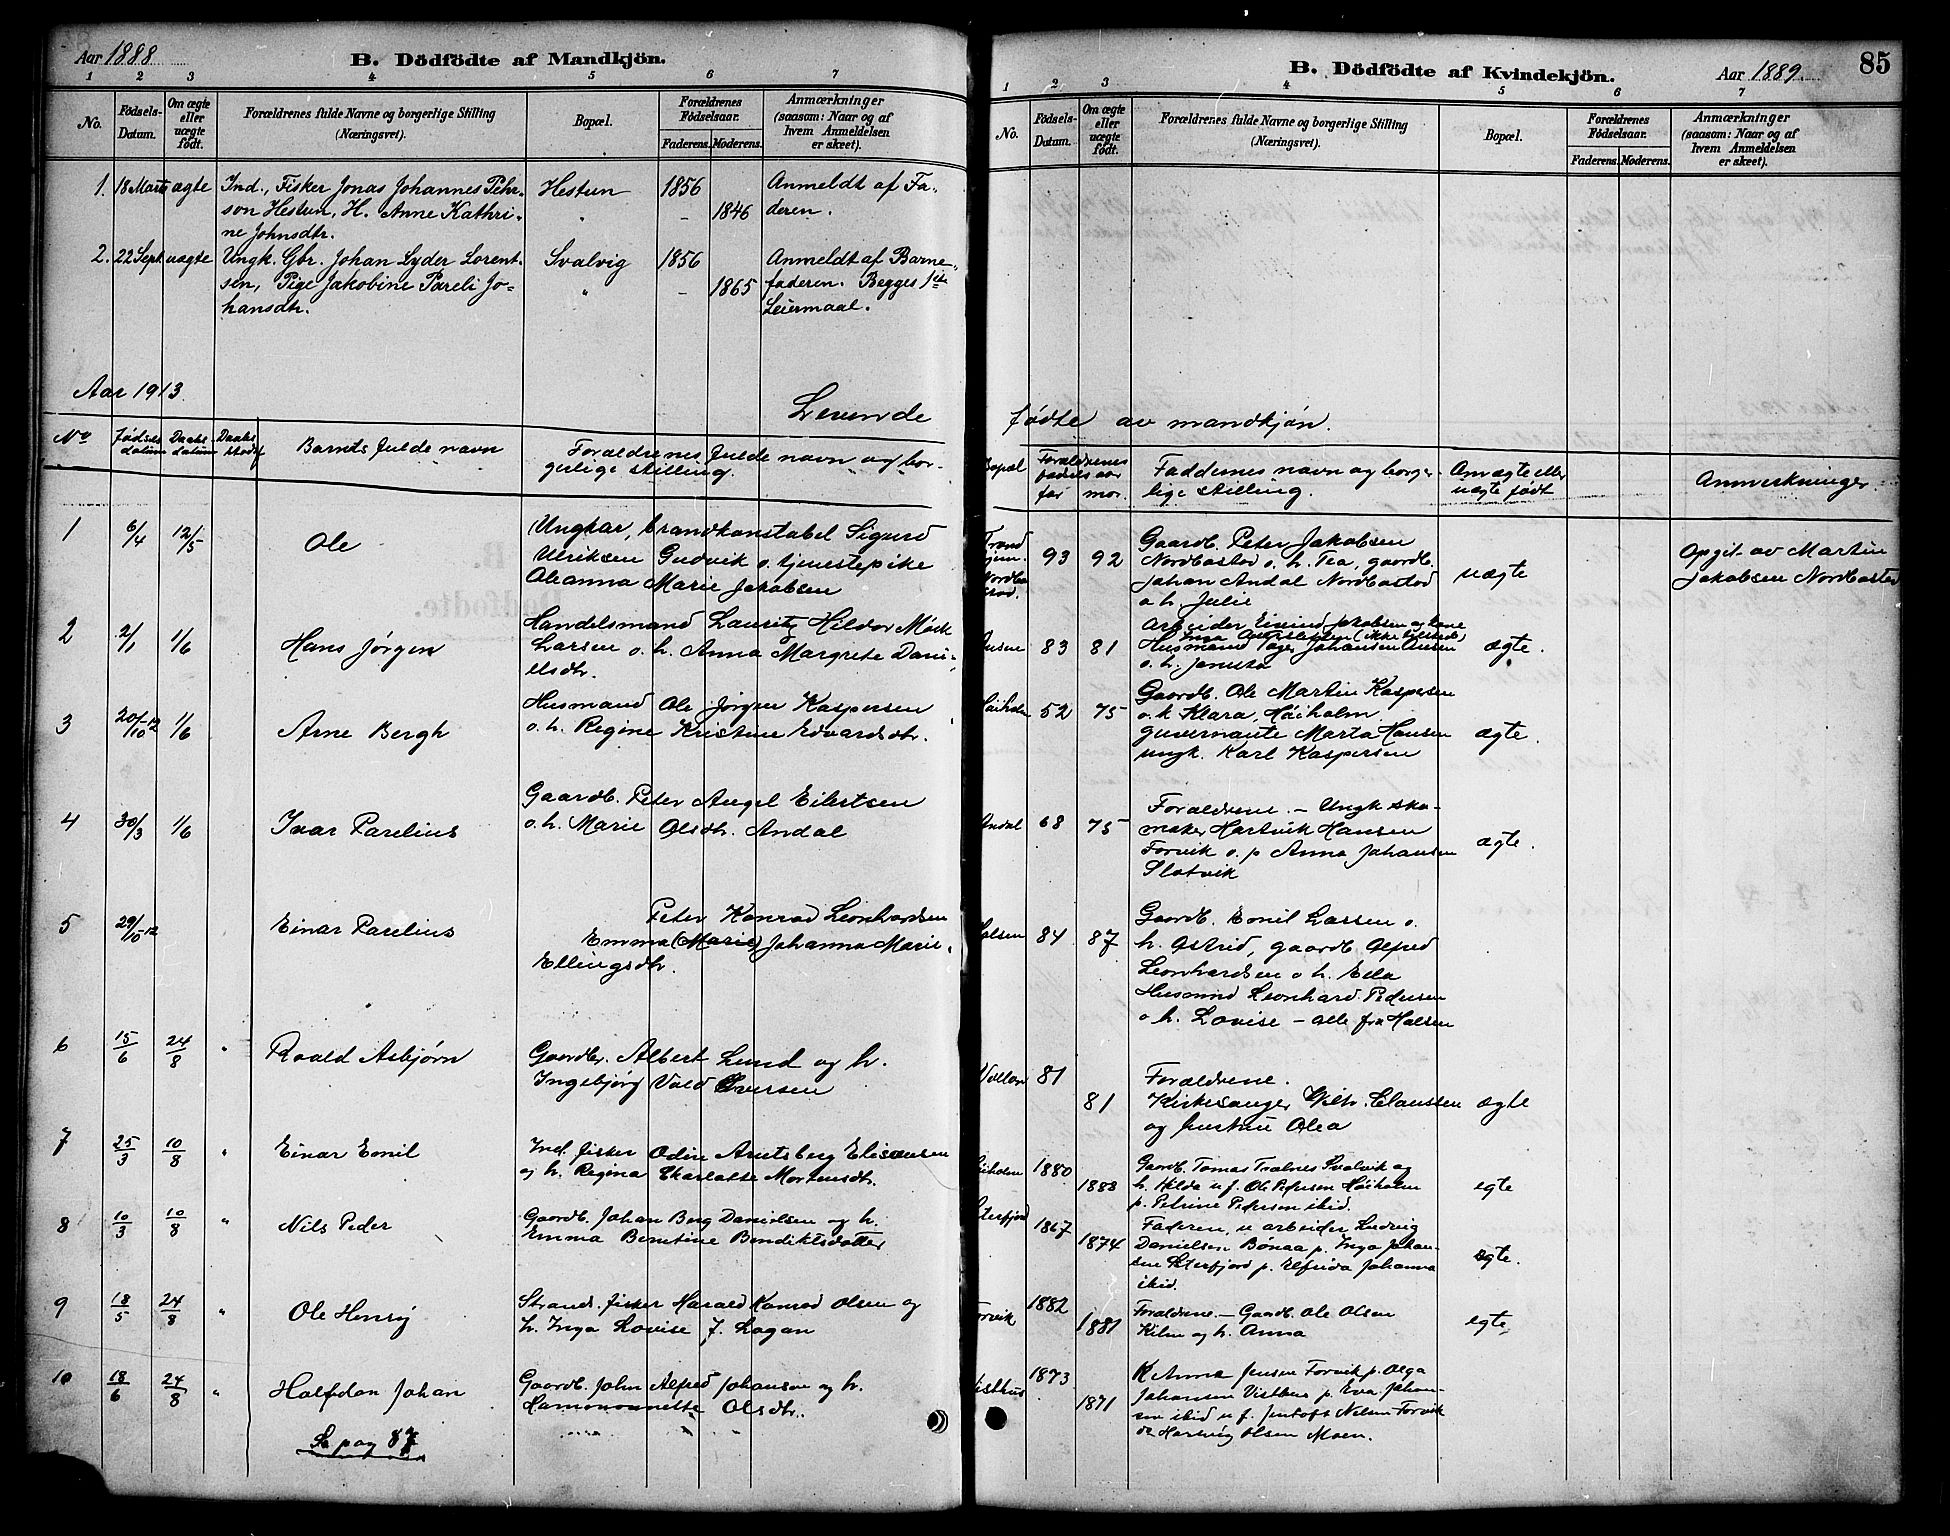 Aar 1888
B. Dödfödte af Mandkjön.
1 2 3 4 5 6 7
No. Födsels-Datum. Om ægte eller uægte födt. Forældrenes fulde Navne og borgerlige Stilling (Næringsvei). Bopæl. Forældrenes Födselsaar. Faderens. Moderens. Anmærkninger (saasom: Naar og af hvem Anmeldelsen er skeet).
1. 18 Marts ægte Ind., Fisker Jonas Johannes Pehr- Hestun 1856 Anmeldt af Fa-
son Hestun, H. Anne Kathri- " - 1846 deren.
ne Johnsdtr.
2. 22 Sept. uægte Ungk. Gbr. Johan Lyder Lorent- Svalvig 1856 Anmeldt af Barne-
sen, Pige Jakobine Pareli Jo- " - 1865 faderen. Begges 1ste
hansdtr. Leiermaal.
Aar 1913. Levende
No Fødsels datum Daabs datum Daabs sted Barnets fulde navn Forældrenes fulde navn og bor-
gerlige stilling.
1 6/4 12/5 Ole Ungkar, brandkonstabel Sigurd
Ulriksen Gudvik o. tjenestepike
Oleanna Marie Jakobsen
2 2/1 1/6 Hans Jørgen Handelsmand Lauritz Hildor Mørk
Larsen o. h. Anna Margrete Dani-
elsdtr.
3 20/10-12 1/6 Arne Bergh Husmand Ole Jørgen Kaspersen
o. h. Regine Kristine Edvardsdtr.
4 30/3 1/6 Ivar Parelius Gaardb. Peter Angel Eilertsen
o. h. Marie Olsdtr. Andal
5 29/10-12 Einar Parelius Peter Konrad Leonhardsen
Emma (Marie) Johanna Marie
Ellingsdtr.
6 15/6 24/8 " Roald Asbjørn Gaardbr. Albert Lund og h.
Ingebjørg Iversen
7 25/3 10/8 " Einar Emil Ind. fisker Odin Arntsberg Eliseussen
og h. Regina Charlotte Mortensdtr.
8 10/3 10/8 " Nils Peder Gaardb. Johan Berg Danielsen og h.
Emma Bentine Bendiktsdatter
9 18/5 24/8 " Ole Henry Strands. fisker Harald Konrad Olsen og
h. Inga Lovise f. Logan
10 18/6 24/8 " Halfdan Johan Gaardb. John Alfred Johansen og h.
Olsdtr.
Se pag 87
B. Dödfödte af Kvindekjön.
Aar 1889
85
1 2 3 4 5 6 7
No. Födsels-Datum. Om ægte eller uægte födt. Forældrenes fulde Navne og borgerlige Stilling (Næringsvei). Bopæl. Forældrenes Födselsaar. Faderens. Moderens. Anmærkninger (saasom: Naar og af hvem Anmeldelsen er skeet).
fødte av mandkjøn.
Bopæl Forældrenes fødselsaar far mor. Faddernes navn og borger-
lige stilling. Om ægte eller uægte født Anmerkninger
93 92 Gaardb. Peter Jakobsen
Nordbostad o. h. Tea, gaardb.
Johan Andal Nordbostad
o h. Julie
uægte Opgit av Martin
Jakobsen Nordbostad
83 81 Arbeider Eivind Jakobsen og kone
(ikke tilstede)
Husmand Johansen
o. h. ægte.
Høiholm 52 75 Gaardb. Ole Martin Kaspersen
o. h Klara, Høiholm.
guvernante Marta Hansen
ungk. Karl Kaspersen
ægte.
Andal 68 75 Forældrene. - Ungk sko-
maker Hartvik Hansen
Forvik o. p Anna Johansen
Slotvik
ægte.
Halsen 84 87 Gaardb. Emil Larsen o.
h. Astrid, gaardb. Alfred
Leonhardsen o h. Ella
Husmand Leonhard Pedersen
o h. Lovise - alle fra Halsen
81 81 Forældrene.
Kirkesanger Vilh. Clausen
og hustru Olea
ægte
Høiholm 1880 1888 Gaardb. Tomas Tralnes Svalvik og
h. Hilda u. f. Ole Pedersen Høiholm
p. Petrine Pedersen ibid.
egte
1867 1874 Faderen, u arbeider Ludvig
Danielsen Bønaa p. Inga Johan-
sen p. Elfrida Johanna
ibid.
egte.
Forvik 1882 1881 Forældrene - Gaardb. Ole Olsen
Kilen og h. Anna
egte
Visthus 1873 1871 K Anna Jensen Forvik p. Olga
Johansen Visthus p. Eva Johan-
sen ibid u f. Jentoft Nilsen Forvik
Hartvig Olsen Moen.